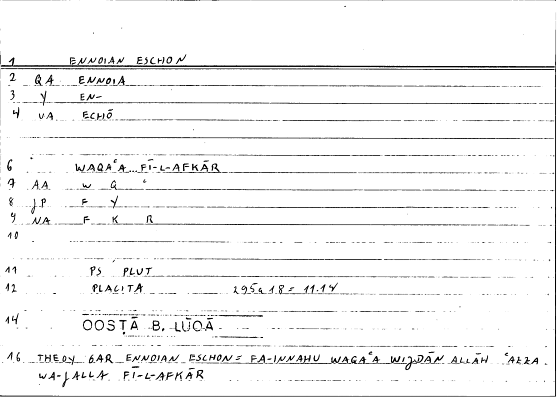 1 ENNOIAN ESCHON
2 QA ENNOIA
3 Y EN-
4 VA ECHŌ
6 WAQAʿA FĪ-L-AFKĀR
7 AA W Q ʿ
8 JP F Y
9 NA F K R
10
11 PS PLUT
12 PLACITA 295a18 = 11.14
14 QOSṬĀ B. LŪQĀ
16 THEOY GAR ENNOIAN ESCHON = FA-INNAHU WAQAʿA WIJDĀN ALLĀH ʿAZZA
WA-JALLA FĪ-L-AFKĀR